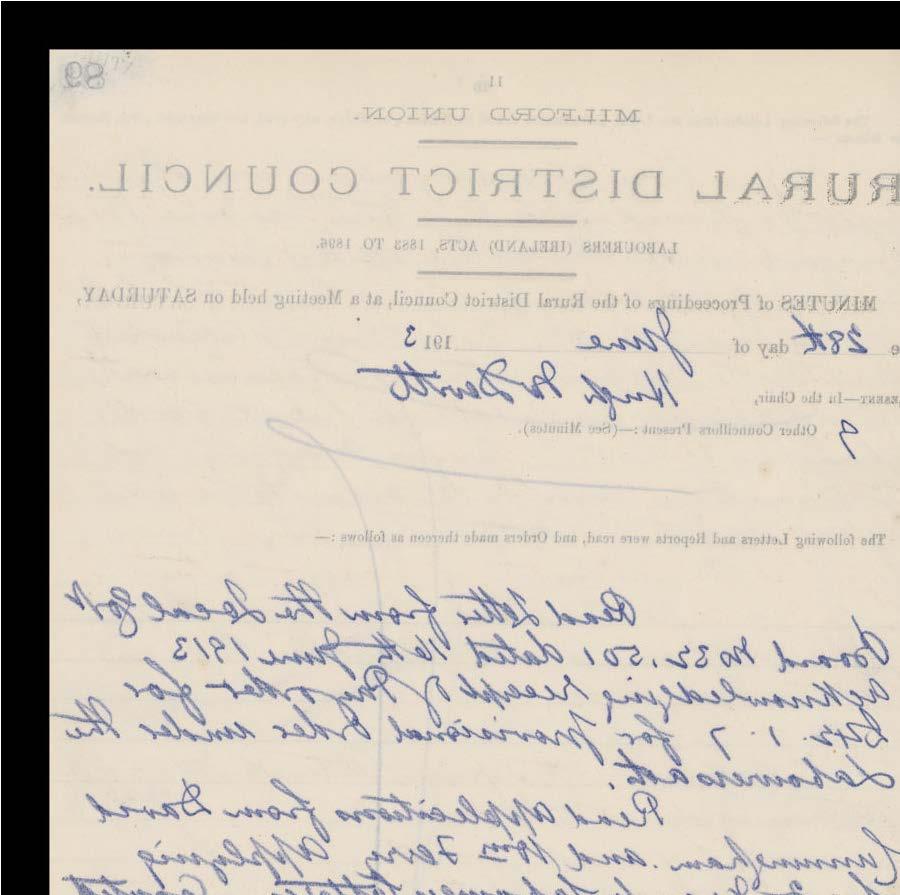 89
11
MILFORD UNION.
RURAL DISTRICT COUNCIL.
LABOURERS (IRELAND) ACTS, 1883 TO 1896.
MINUTES of Proceedings of the Rural District Council, at a Meeting held on SATURDAY,
e 28th day of June 1913
ESENT—In the Chair, Hugh McDevitt
Other Councillors Present:—(See Minutes). 9
The following Letters and Reports were read, and Orders made thereon as follows:—
Read letter from the Local Govt
Board No 32.501 dated 16th June 1913
acknowledging receipt of for
£42. 1. 7 for Provisional Order under the
Labourers act.
Read applications from David
Cunningham and Wm applying